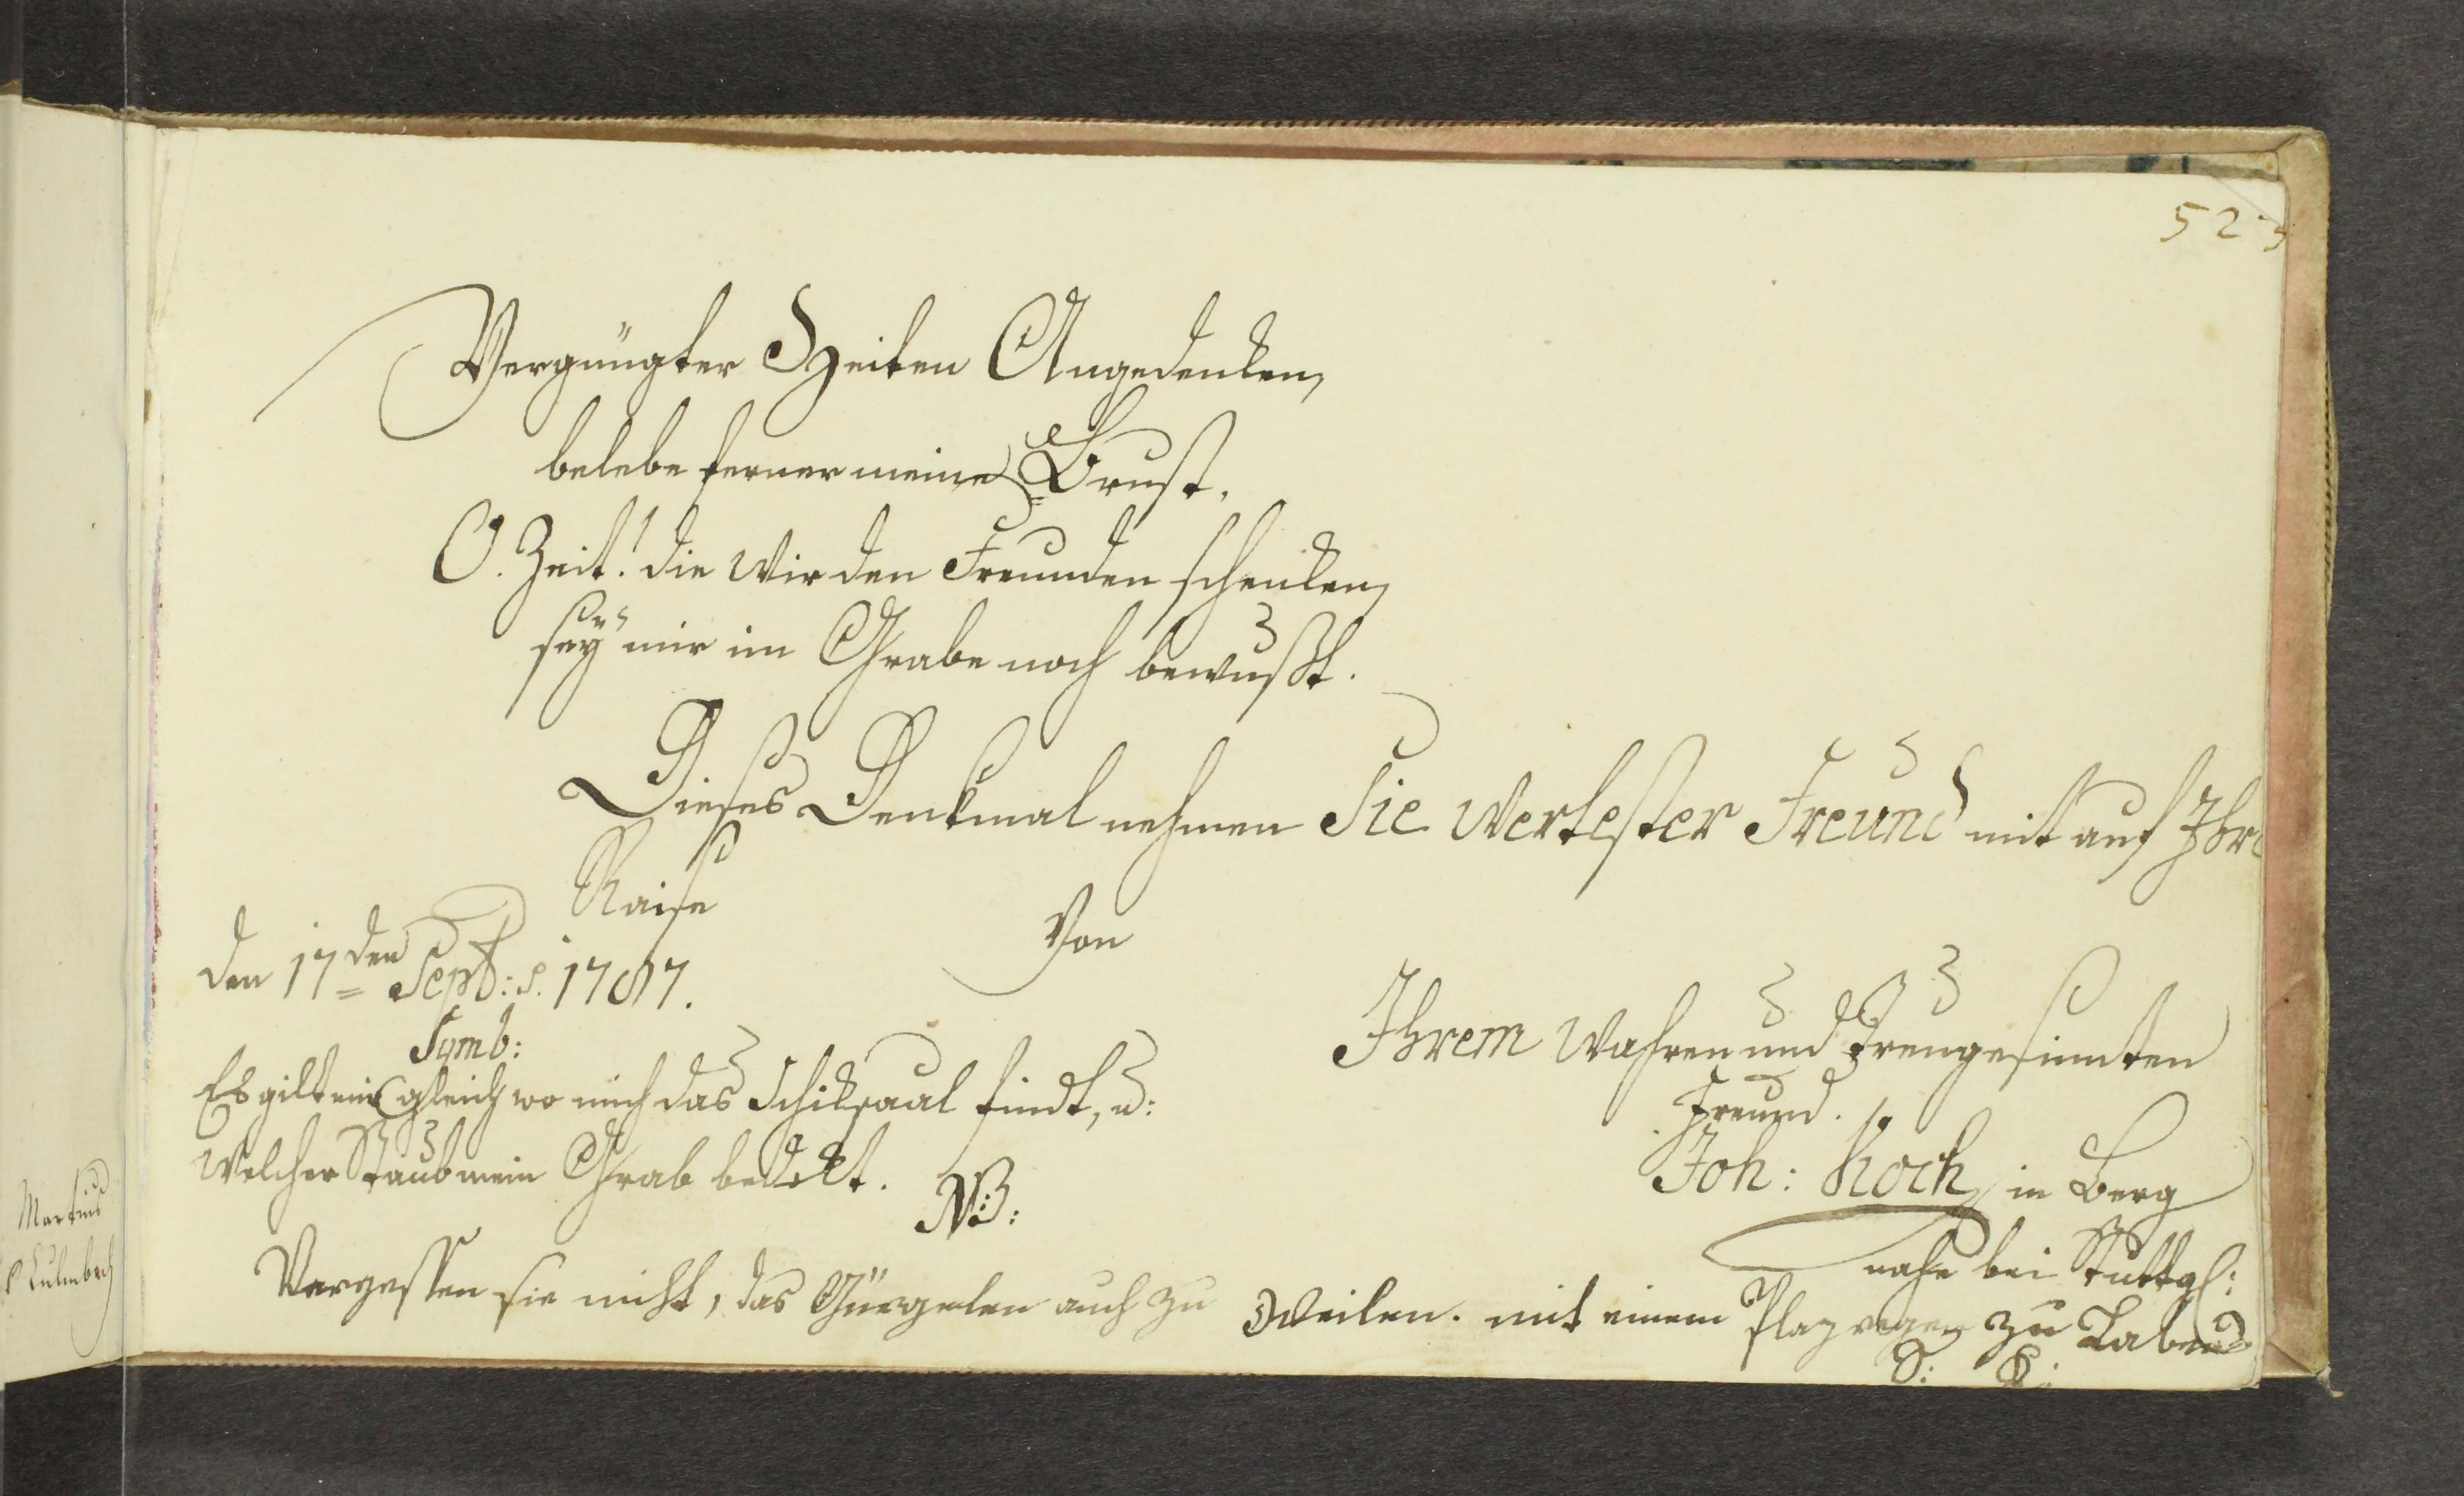 523
Vergnügter Zeiten Angedenken,
belebe ferner meine Brust,
O. Zeit! die wir den Freunden schenken,
sey mir im Grabe noch bewußt.
Dieses Denkmal nehmen Sie Wertester Freund mit auf Ihre
Raise
Von
den 17den Sept: 1787.
Symb:
Es gilt mir gleich wo mich das Schiksaal findt, u:
welcher Staub mein Grab bedekt.
Ihrem wahren und Treugesinnten
Freund.
Joh: Koch in Berg
nahe bei Stuttg:
NB:
Vergessen sie nicht, das Gürgelen auch zu
Weilen. mit einem Plazregen zu Laben
Martius
Culmbach